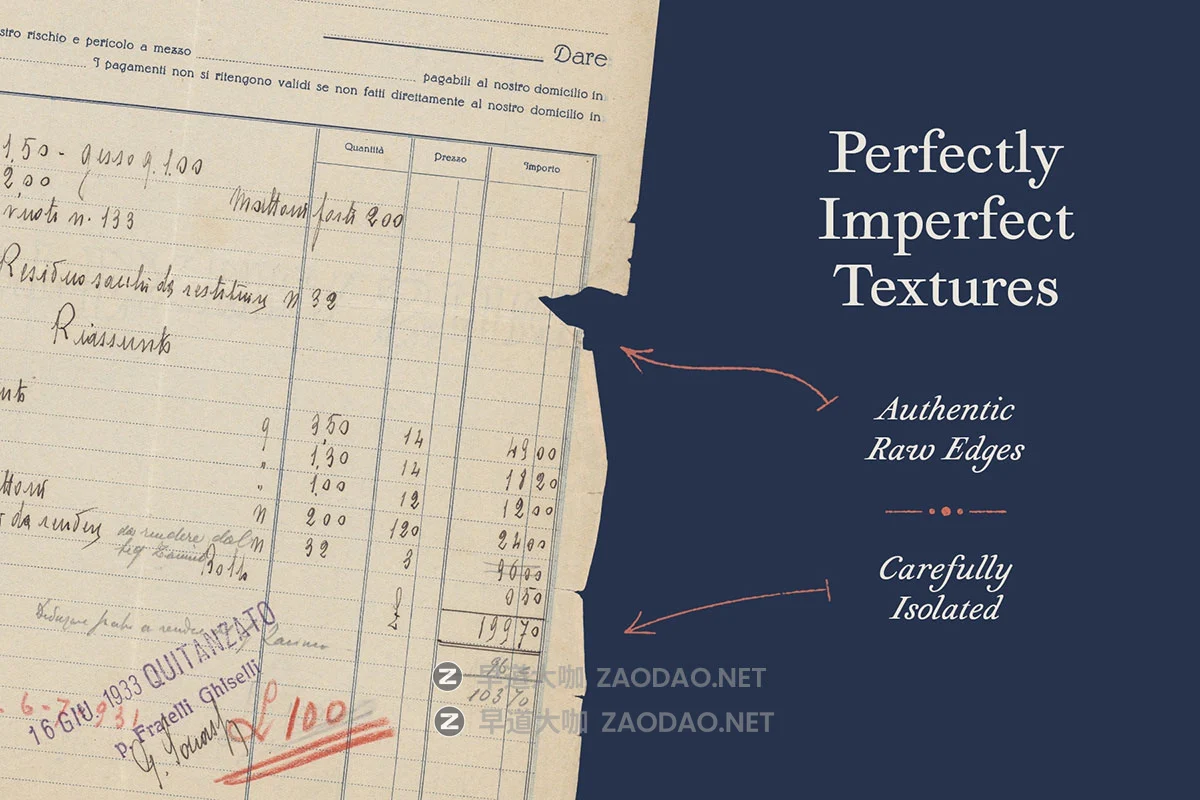 Dare
stro rischio e pericolo a mezzo
pagabili al nostro domicilio in
I pagamenti non si ritengono validi se non fatti direttamente al nostro domicilio in
Quantità Prezzo Importo
1.50 - gesso q. 1.00
2.00
vuoti n. 133
Mattoni forti 200
Residuo sacchi da restituire N 32
Riassunto
q 3,50 14 49 00
" 1,30 14 18 20
" 1,00 12 12 00
N 200 120 24 00
da rendere N 32 3 96 00
da rendere dal
Bollo 0 50
199 70
16 GIU. 1933 QUITANZATO
p. Fratelli Ghiselli
£ 100
Perfectly
Imperfect
Textures
Authentic
Raw Edges
Carefully
Isolated
早道大咖 ZAODAO.NET
早道大咖 ZAODAO.NET